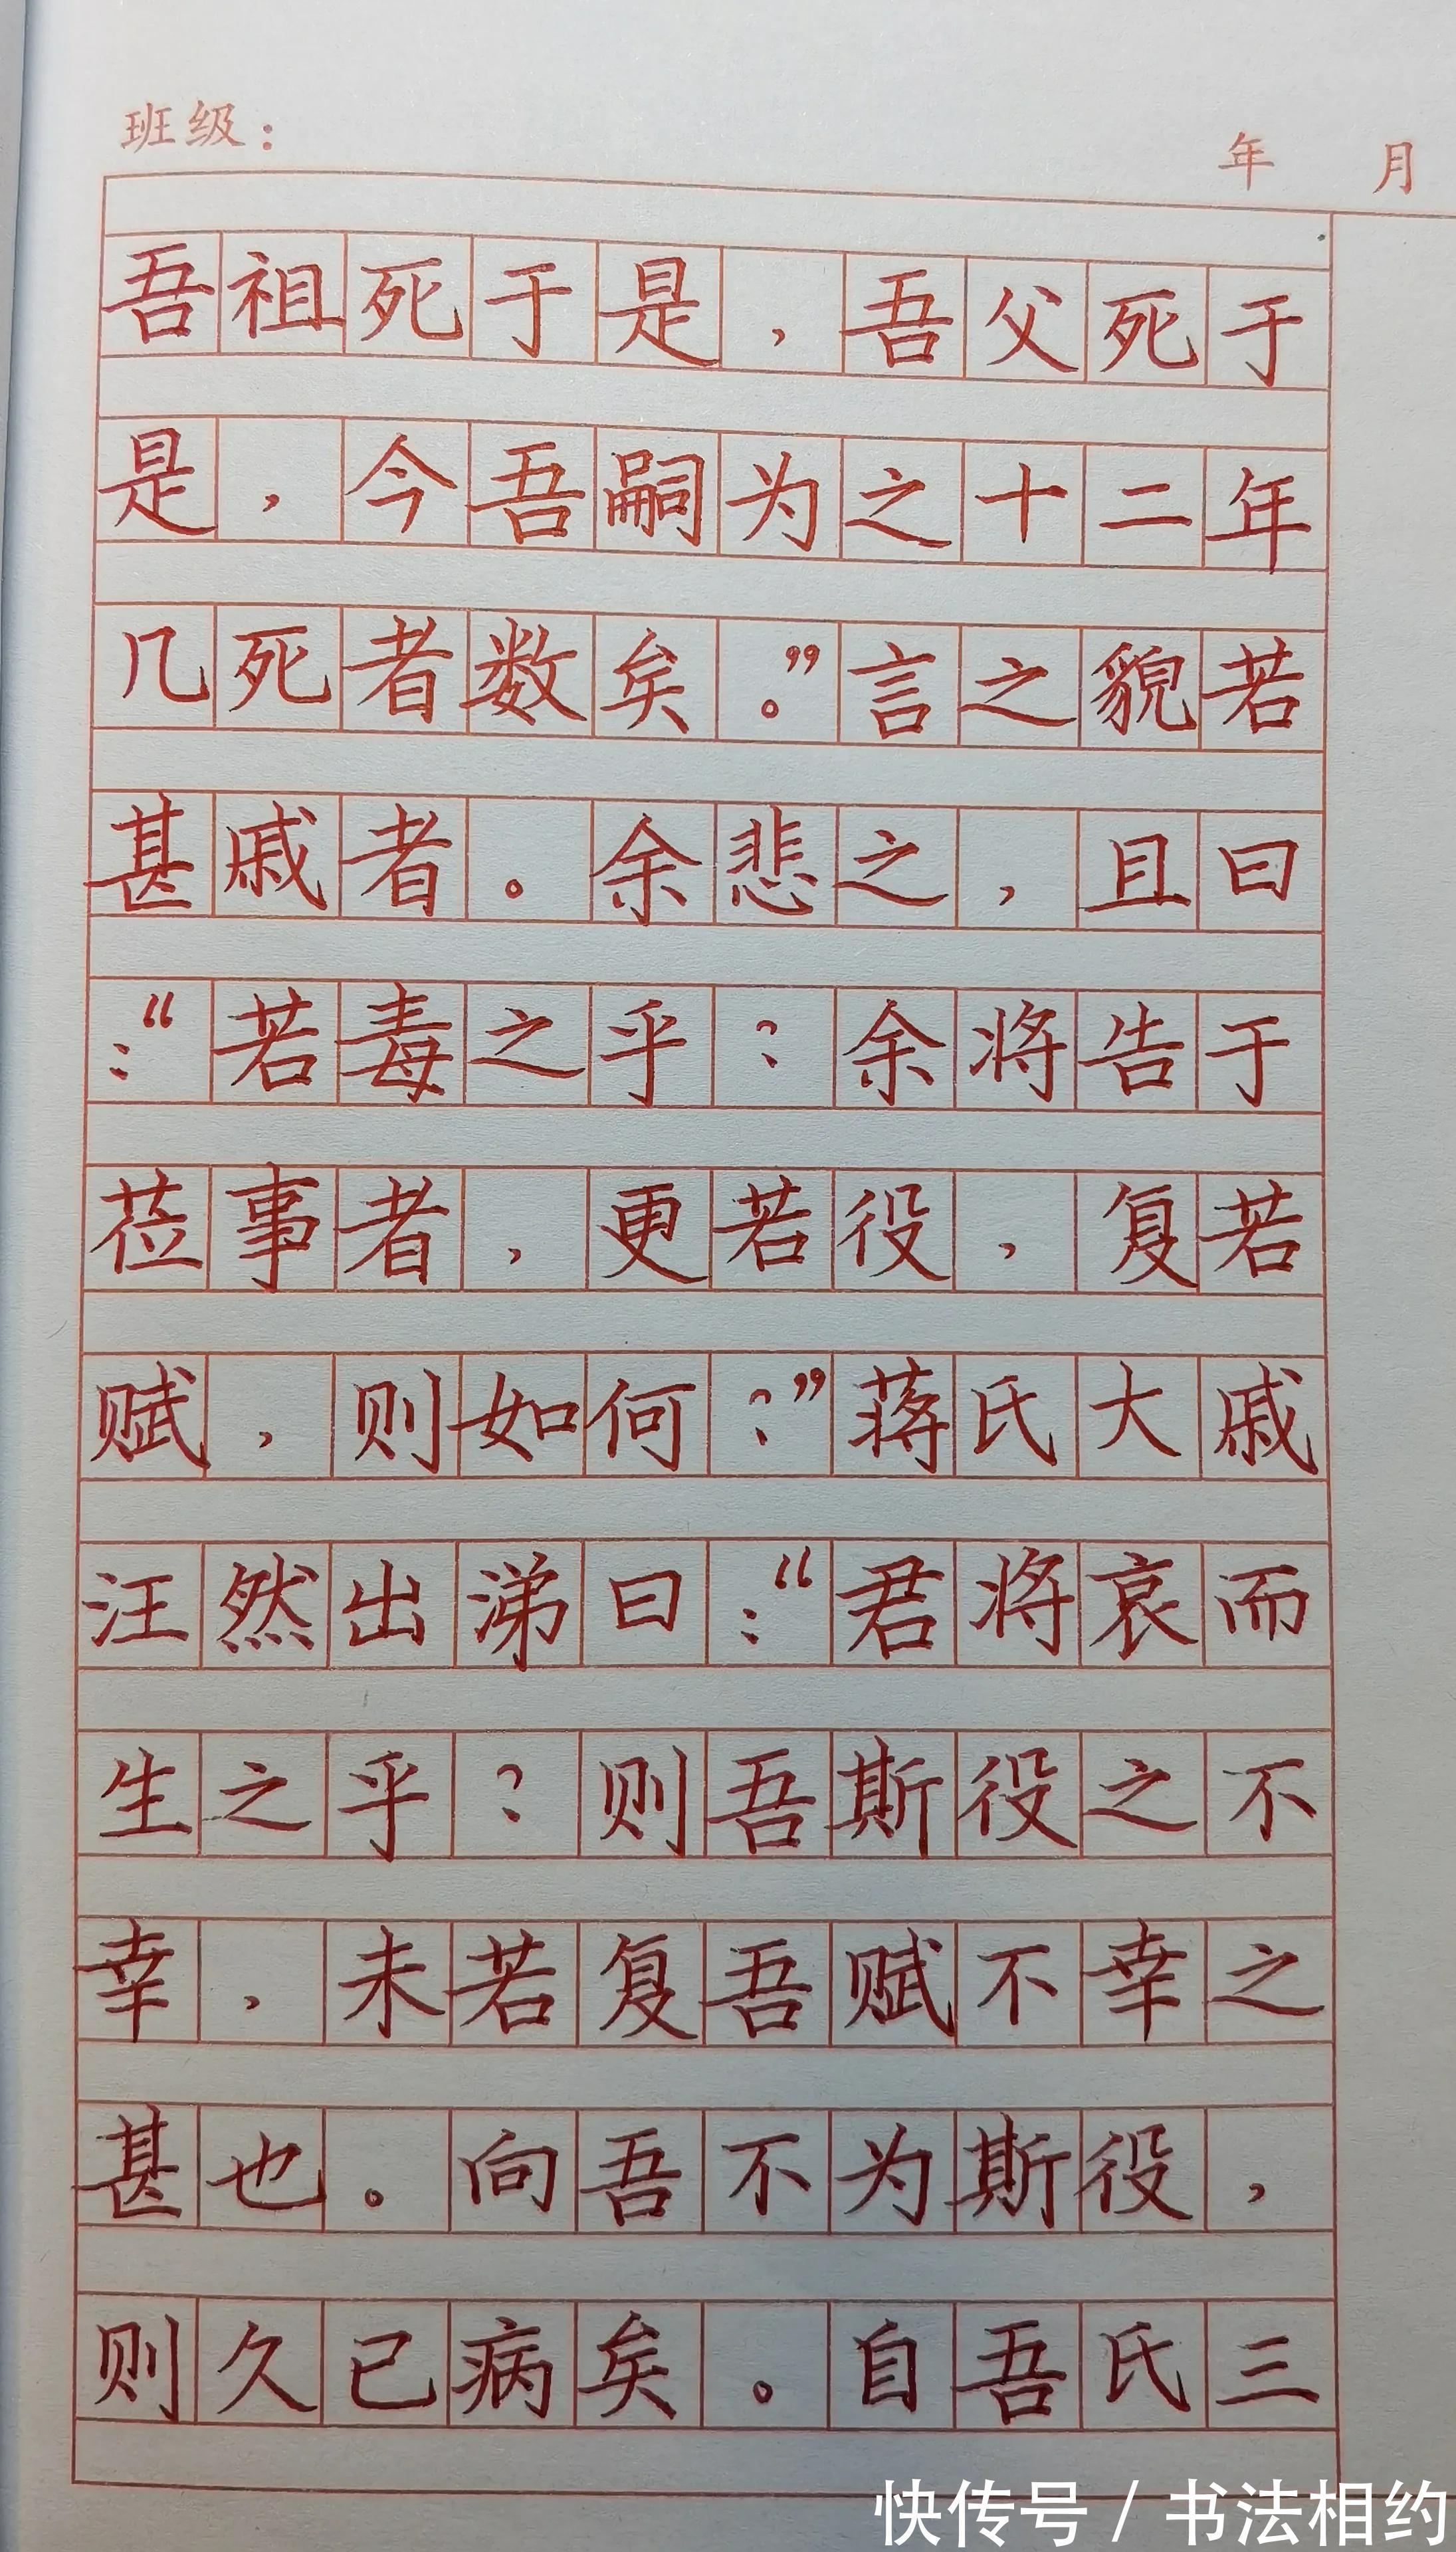 班级：
年 月
吾祖死于是，吾父死于
是，今吾嗣为之十二年
几死者数矣。”言之貌若
甚戚者。余悲之，且曰
：“若毒之乎？余将告于
莅事者，更若役，复若
赋，则如何？”蒋氏大戚
汪然出涕曰：“君将哀而
生之乎？则吾斯役之不
幸，未若复吾赋不幸之
甚也。向吾不为斯役，
则久已病矣。自吾氏三
快传号/书法相约